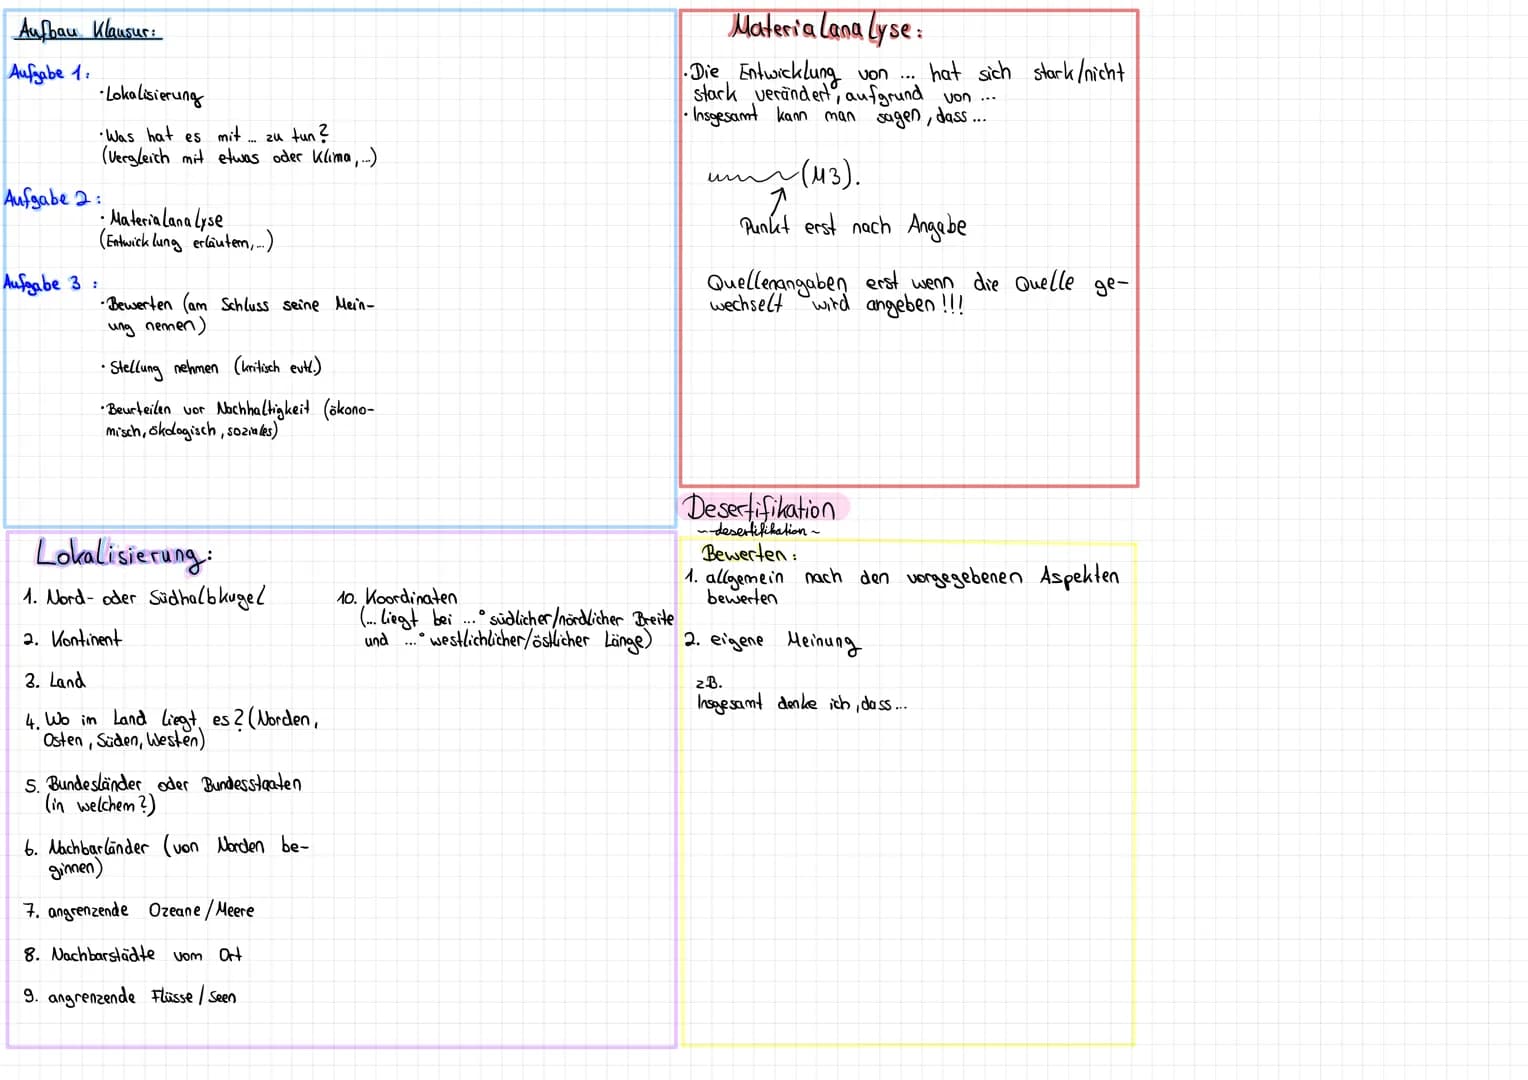 Aufbau Klausur:
Aufgabe 1:
·Lokalisierung
·Was hat es mit ... zu tun?
(Vergleich mit etwas oder Klima,...)
Aufgabe 2:
·Materialanalyse
(Entwicklung erläutern,...)
Aufgabe 3:
·Bewerten (am Schluss seine Mein-
ung nennen)
·Stellung nehmen (kritisch evtl.)
·Beurteilen vor Nachhaltigkeit (ökono-
misch, ökologisch, soziales)
Materialanalyse:
·Die Entwicklung von ... hat sich stark/nicht
stark verändert, aufgrund von ...
·Insgesamt kann man sagen, dass ...
(M3).
Punkt erst nach Angabe
Quellenangaben erst wenn die Quelle ge-
wechselt wird angeben!!!
Lokalisierung:
1. Nord- oder Südhalbkugel
2. Kontinent
3. Land
4. Wo im Land liegt es? (Norden,
Osten, Süden, Westen)
5. Bundesländer oder Bundesstaaten
(in welchem?)
6. Nachbarländer (von Norden be-
ginnen)
7. angrenzende Ozeane/Meere
8. Nachbarstädte vom Ort
9. angrenzende Flüsse/Seen
10. Koordinaten
(... liegt bei ...° südlicher/nördlicher Breite
und ...° westlichlicher/östlicher Länge)
Desertifikation
~desertifikation~
Bewerten:
1. allgemein nach den vorgegebenen Aspekten
bewerten
2. eigene Meinung
z.B.
Insgesamt denke ich, dass...